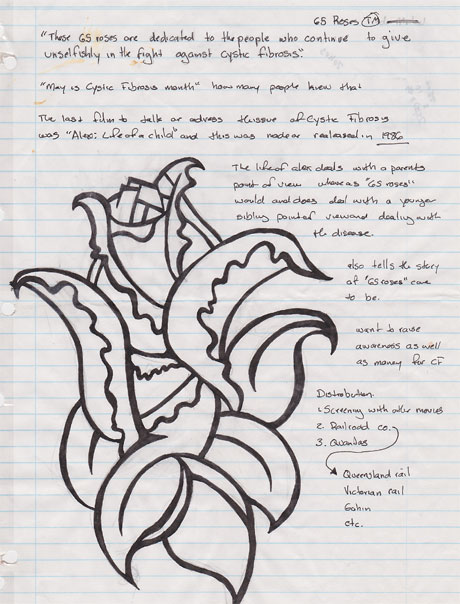 65 Roses TM
"These 65 roses are dedicated to the people who continue to give
unselfishly in the fight against cystic fibrosis".
"May is Cystic Fibrosis month" how many people knew that
The last film to talk or address this issue of Cystic Fibrosis
was "Alex: Life of a child" and this was made or realeased in 1986
The life of alex deals with a parents
point of view whereas "65 roses"
would and does deal with a younger
sibling point of view and dealing with
the disease.
also tells the story
of "65 roses" came
to be.
want to raise
awareness as well
as money for CF
Distribution.
1. Screening with other movies
2. Railroad co.
3. Quandas
Queensland rail
Victorian rail
etc.